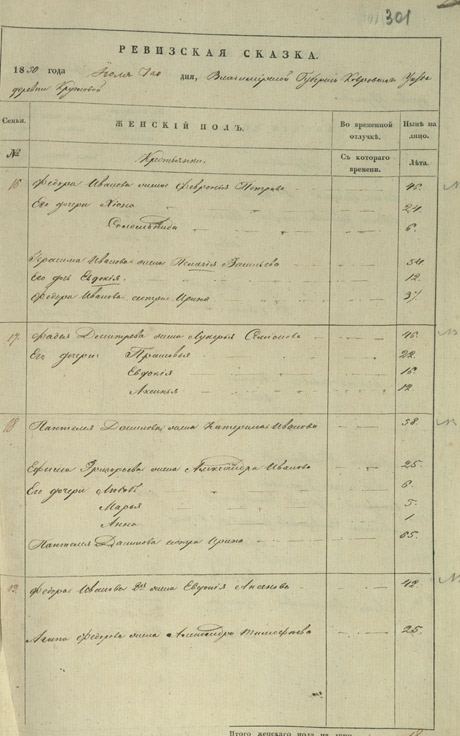 301
РЕВИЗСКАЯ СКАЗКА.
1850 года дня, Владимирской Губернии Ковровского Уезда
деревни
Семьи. ЖЕНСКІЙ ПОЛЪ. Во временной отлучкѣ. Нынѣ на лицо.
№ Крестьянки. Съ котораго времени. Лѣта.
16 Федора Иванова жена Февронья Петрова 45.
Его дочери 24.
6.
Герасима Иванова жена Пелагея Васильева 54.
Его дочь Евдокія. 12.
Федора Иванова сестра Ирина 37.
17. Фадея Дмитрева жена Лукерья Семенова 45.
Его дочери Прасковья 22.
Евдокія 15.
Аксинья 12.
18 Пантелея Данилова жена Катерина Иванова 58.
Ефима Григорьева жена Александра Иванова 25.
Его дочери Любовь 6.
Марья 5.
Анна 1.
Пантелея Данилова сестра Ирина 65.
Федора Иванова жена Евдокія 42.
Федорова жена Александра Тимофеева 25.
Итого женскаго пола на лицо